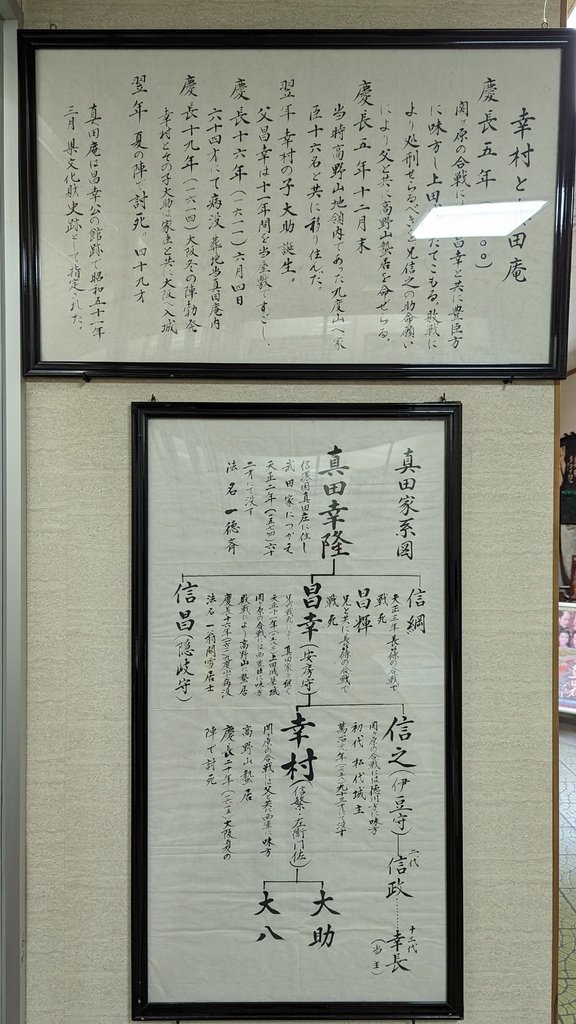 幸村と真田庵
慶長五年(一六〇〇)
関ヶ原の合戦に 昌幸と共に豊臣方
に味方し上田 たてこもる、敗戦に
より処刑せらるべきを兄信之の助命願い
により父と共に高野山蟄居を命せらる。
慶長五年十二月末
当時高野山地領内であった九度山へ家
臣十六名と共に移り住んだ。
翌年 幸村の子大助誕生。
父昌幸は十一年間を当屋敷ですごし、
慶長十六年(一六一一)六月四日
六十四才にて病没 葬地当真田庵内
慶長十九年(一六一四)大阪冬の陣勃発
幸村とその子大助は家臣と共に大阪へ入城
翌年 夏の陣で討死 四十九才
真田庵は昌幸公の館跡で昭和五十一年
三月 県文化財史跡として指定された。
真田家系図
真田幸隆
信濃国真田庄に住し
武田家につかえ
天正二年(一五七四)六十
二才にて没す
法名 一徳斉
信綱
天正三年 長篠の合戦で
戦死
昌輝
兄と共に長篠の合戦で
戦死
昌幸(安房守)
兄の戦死により 真田家を継ぐ
天正十一年 上田城築城
関ヶ原の合戦には西豊臣に味方
敗戦により高野山に蟄居
慶長十六年 九度山で病没
法名 一翁閑雪居士
信昌(隠岐守)
信之(伊豆守)
関ヶ原の合戦には徳川方に味方
初代 松代城主
萬治元年(一六五八)九十三才にて没す
二代
信政
十三代
幸長
(当主)
幸村(信繁・左衛門佐)
関ヶ原の合戦は父と共に西軍に味方
高野山蟄居
慶長二十年(一六一五)大阪夏の
陣で討死
大助
大八